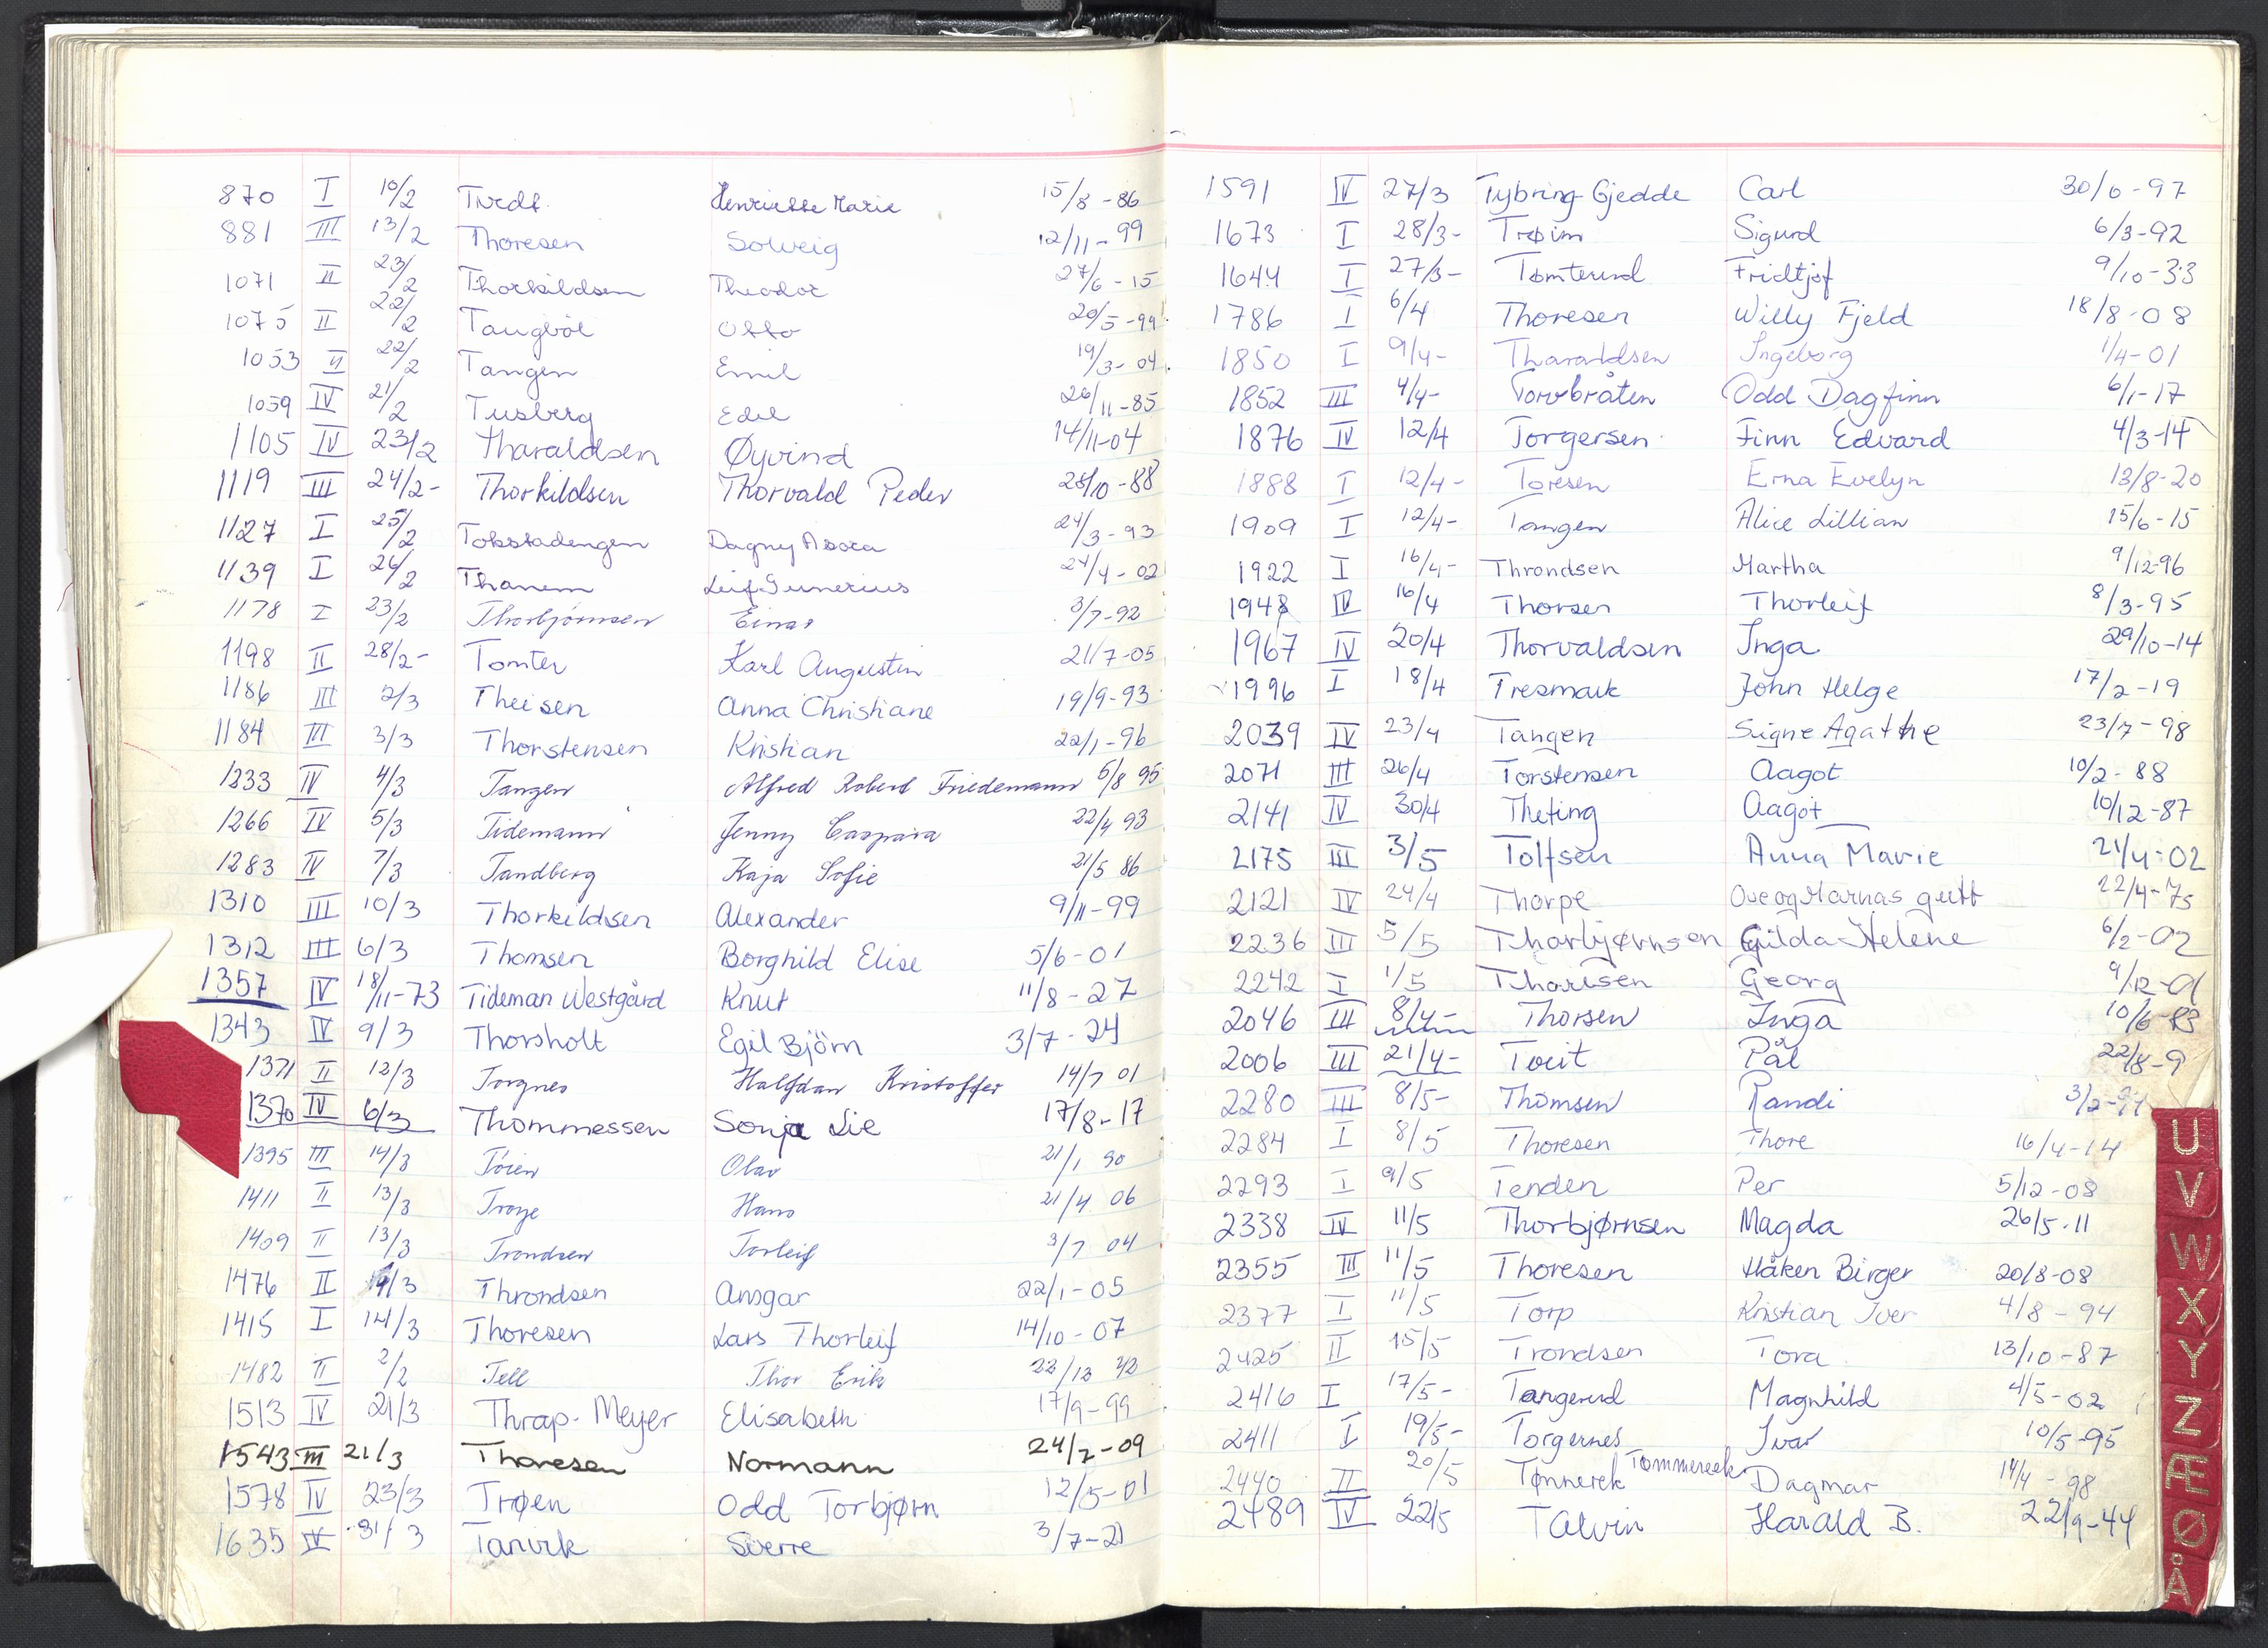 870 I 10/2 Tvedt Henriette Marie 15/8-86
881 III 13/2 Thoresen Solveig 12/11-99
1071 II 23/2 Thorkildsen Theodor 27/6-15
1075 II 22/2 Taugbøl Otto 20/5-99
1053 II 22/2 Tangen Emil 19/3-04
1059 IV 21/2 Tusberg Edel 26/11-85
1105 IV 23/2 Tharaldsen Øyvind 14/11-04
1119 III 24/2- Thorkildsen Thorvald Peder 28/10-88
1127 I 25/2 Tokstadengen Dagny Asora 24/3-93
1139 I 26/2 Thanem Leif Gunerius 24/4-02
1178 I 23/2 Thorbjörnsen Einar 3/7-92
1198 II 28/2- Tomter Karl Augustin 21/7-05
1186 III 2/3 Theisen Anna Christiane 19/9-93
1184 III 3/3 Thorstensen Kristian 22/1-96
1233 IV 4/3 Tangen Alfred Robert Friedemann 5/8 95
1266 IV 5/3 Tidemann Jenny Caspara 22/4 93
1283 IV 7/3 Tandberg Kaja Sofie 21/5 86
1310 III 10/3 Thorkildsen Alexander 9/11-99
1312 III 6/3 Thomsen Borghild Elise 5/6-01
1357 IV 18/11-73 Tideman Westgård Knut 11/8-27
1343 IV 9/3 Thorsholt Egil Björn 3/7-24
1371 II 12/3 Torgnes Halfdan Kristoffer 14/7 01
1370 IV 6/3 Thommessen Sonja Lie 17/8-17
1395 III 14/3 Töien Olav 21/1 90
1411 II 13/3 Troye Hans 21/4 06
1409 II 13/3 Trondsen Torleif 3/7 04
1476 II 19/3 Throndsen Ansgar 22/1-05
1415 I 14/3 Thoresen Lars Thorleif 14/10-07
1482 II 2/2 Tell Thor Erik 22/12 42
1513 IV 21/3 Thrap-Meyer Elisabeth 17/9-99
1543 III 21/3 Thoresen Normann 24/2-09
1578 IV 23/3 Trøen Odd Torbjørn 12/5-01
1635 IV 31/3 Tanvik Sverre 3/7-21
1591 IV 27/3 Tybring-Gjedde Carl 30/6-97
1673 I 28/3- Trøim Sigurd 6/3-92
1644 I 27/3- Tømterud Fridtjof 9/10-33
1786 I 6/4 Thoresen Willy Fjeld 18/8-08
1850 I 9/4- Tharaldsen Ingeborg 1/4-01
1852 III 4/4- Torvbråten Odd Dagfinn 6/1-17
1876 IV 12/4 Torgersen Finn Edvard 4/3-14
1888 I 12/4- Toresen Erna Evelyn 13/8-20
1909 I 12/4- Tangen Alice Lillian 15/6-15
1922 I 16/4- Throndsen Martha 9/12-96
1948 IV 16/4 Thorsen Thorleif 8/3-95
1967 IV 20/4 Thorvaldsen Inga 29/10-14
1996 I 18/4 Tresmark John Helge 17/2-19
2039 IV 23/4 Tangen Signe Agathe 23/7-98
2071 III 26/4 Torstensen Aagot 10/2-88
2141 IV 30/4 Theting Aagot 10/12-87
2175 III 3/5 Tolfsen Anna Marie 21/4-02
2121 IV 24/4 Thorpe Ove og Marnas gutt 22/4-75
2236 III 5/5 Thorbjørnsen Gilda Helene 6/2-02
2242 I 1/5 Thorisen Georg 9/12-01
2046 III 8/4- Thorsen Inga 10/6-83
2006 III 21/4- Tveit Pål 22/8-9
2280 III 8/5- Thomsen Randi 3/2-91
2284 I 8/5 Thoresen Thore 16/4-14
2293 I 9/5 Tenden Per 5/12-08
2338 IV 11/5 Thorbjørnsen Magda 26/5-11
2355 III 11/5 Thoresen Håken Birger 20/8-08
2377 I 11/5 Torp Kristian Iver 4/8-94
2425 II 15/5 Trondsen Tora 13/10-87
2416 I 17/5- Tangerud Magnhild 4/5-02
2411 I 19/5- Torgernes Ivar 10/5-95
2440 II 20/5 Tønnerek Tømmereek Dagmar 14/4-98
2489 IV 22/5 TAlvin Harald B. 22/9-44
U
V
W
X
Y
Z
Æ
Ø
Å